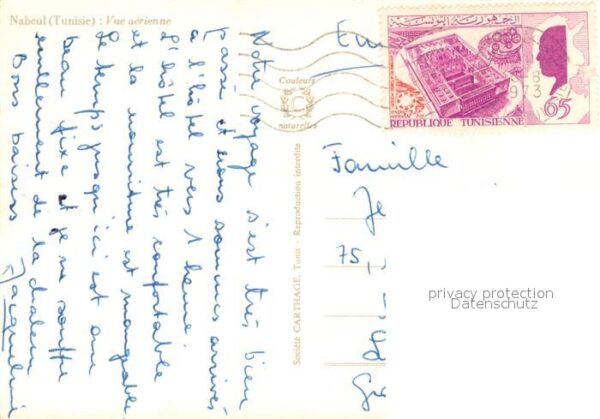 Nabeul (Tunisie) : Vue aérienne
Notre voyage s'est très bien
passé et nous sommes arrivés
à l'hôtel vers 1 heure.
L'hôtel est très confortable
et la nourriture est mangeable
Le temps jusqu'ici est au
beau fixe et je ne souffre
nullement de la chaleur
Bons baisers
Jacqueline
Couleurs
naturelles
Société CARTHAGE, Tunis - Reproduction interdite
الجمهورية التونسية
REPUBLIQUE TUNISIENNE
65
8
1973
Famille
Je
75
privacy protection
Datenschutz